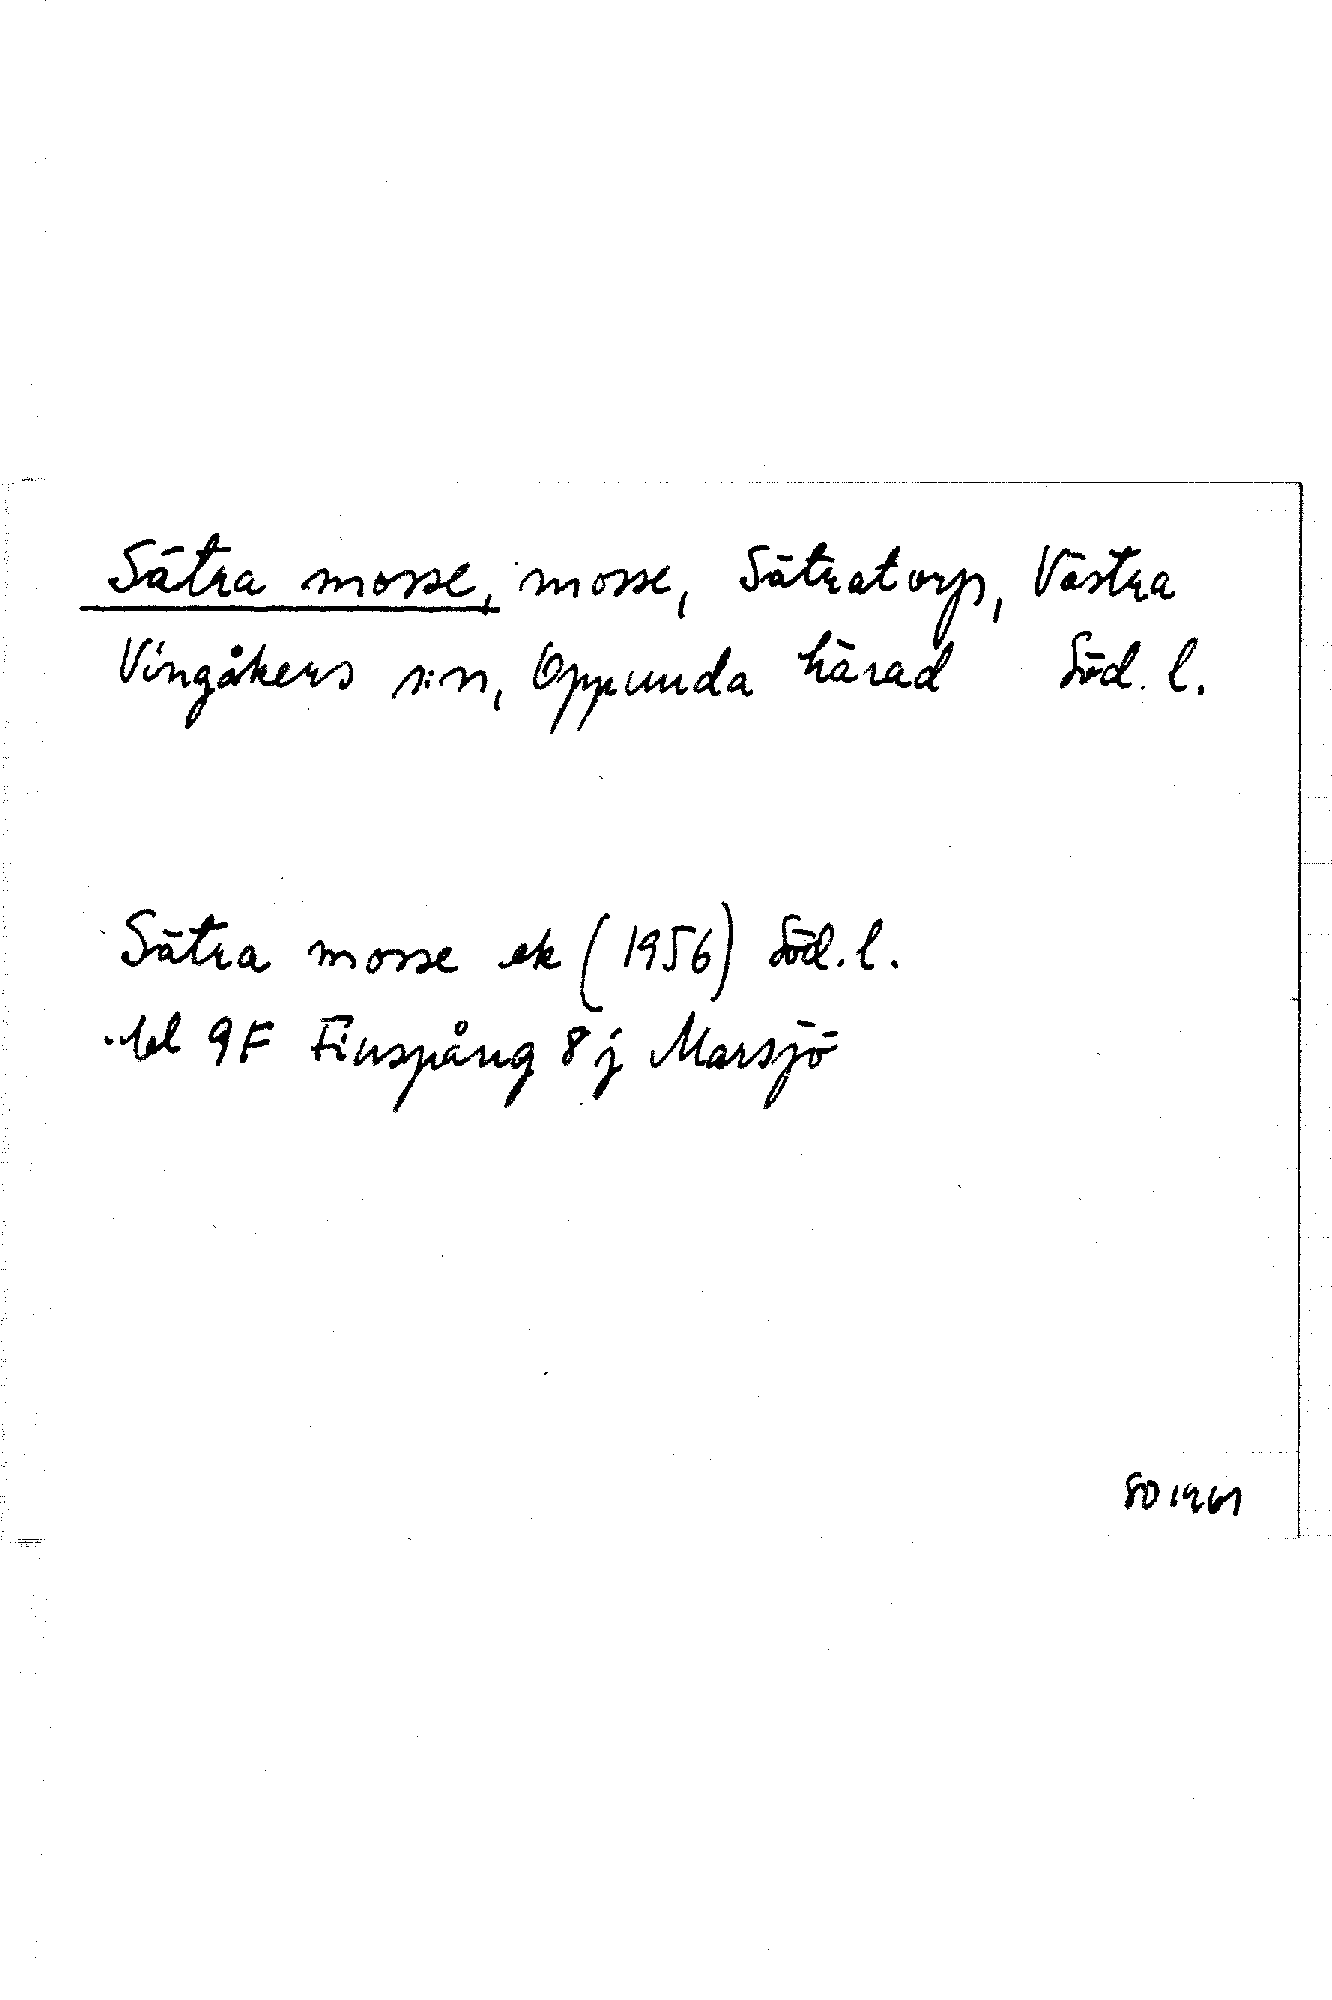 Sätra mosse, mosse, Sätratorp, Västra
Vingåkers s:n, Oppunda härad Söd. l.
Sätra mosse ek (1956) Söd. l.
bl 9F Finspång 8j Marsjö
SO 1961